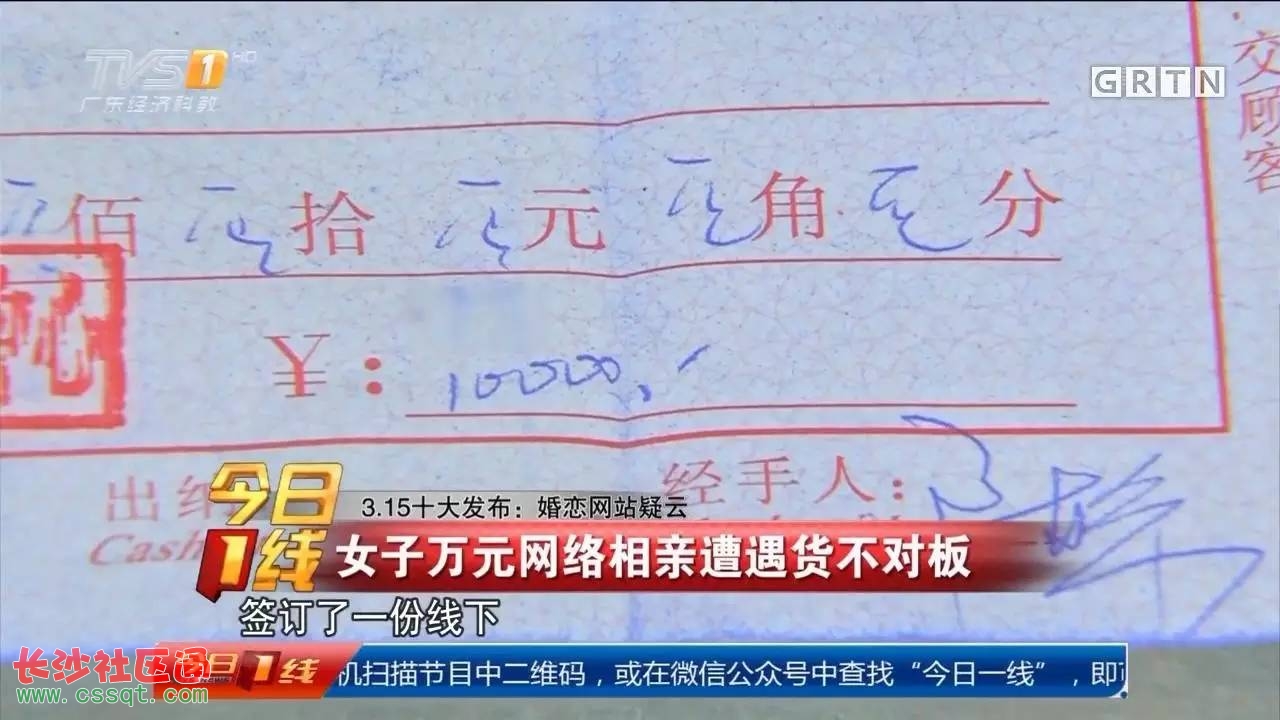 TVS1 HD
广东经济科教
GRTN
交顾客
佰 零 拾 零 元 零 角 零 分
¥: 10000.
出纳
Cash
经手人:
今日
1线
3.15十大发布：婚恋网站疑云
女子万元网络相亲遭遇货不对板
签订了一份线下
今日1线
机扫描节目中二维码，或在微信公众号中查找“今日一线”，即可
长沙社区通
www.cssqt.com